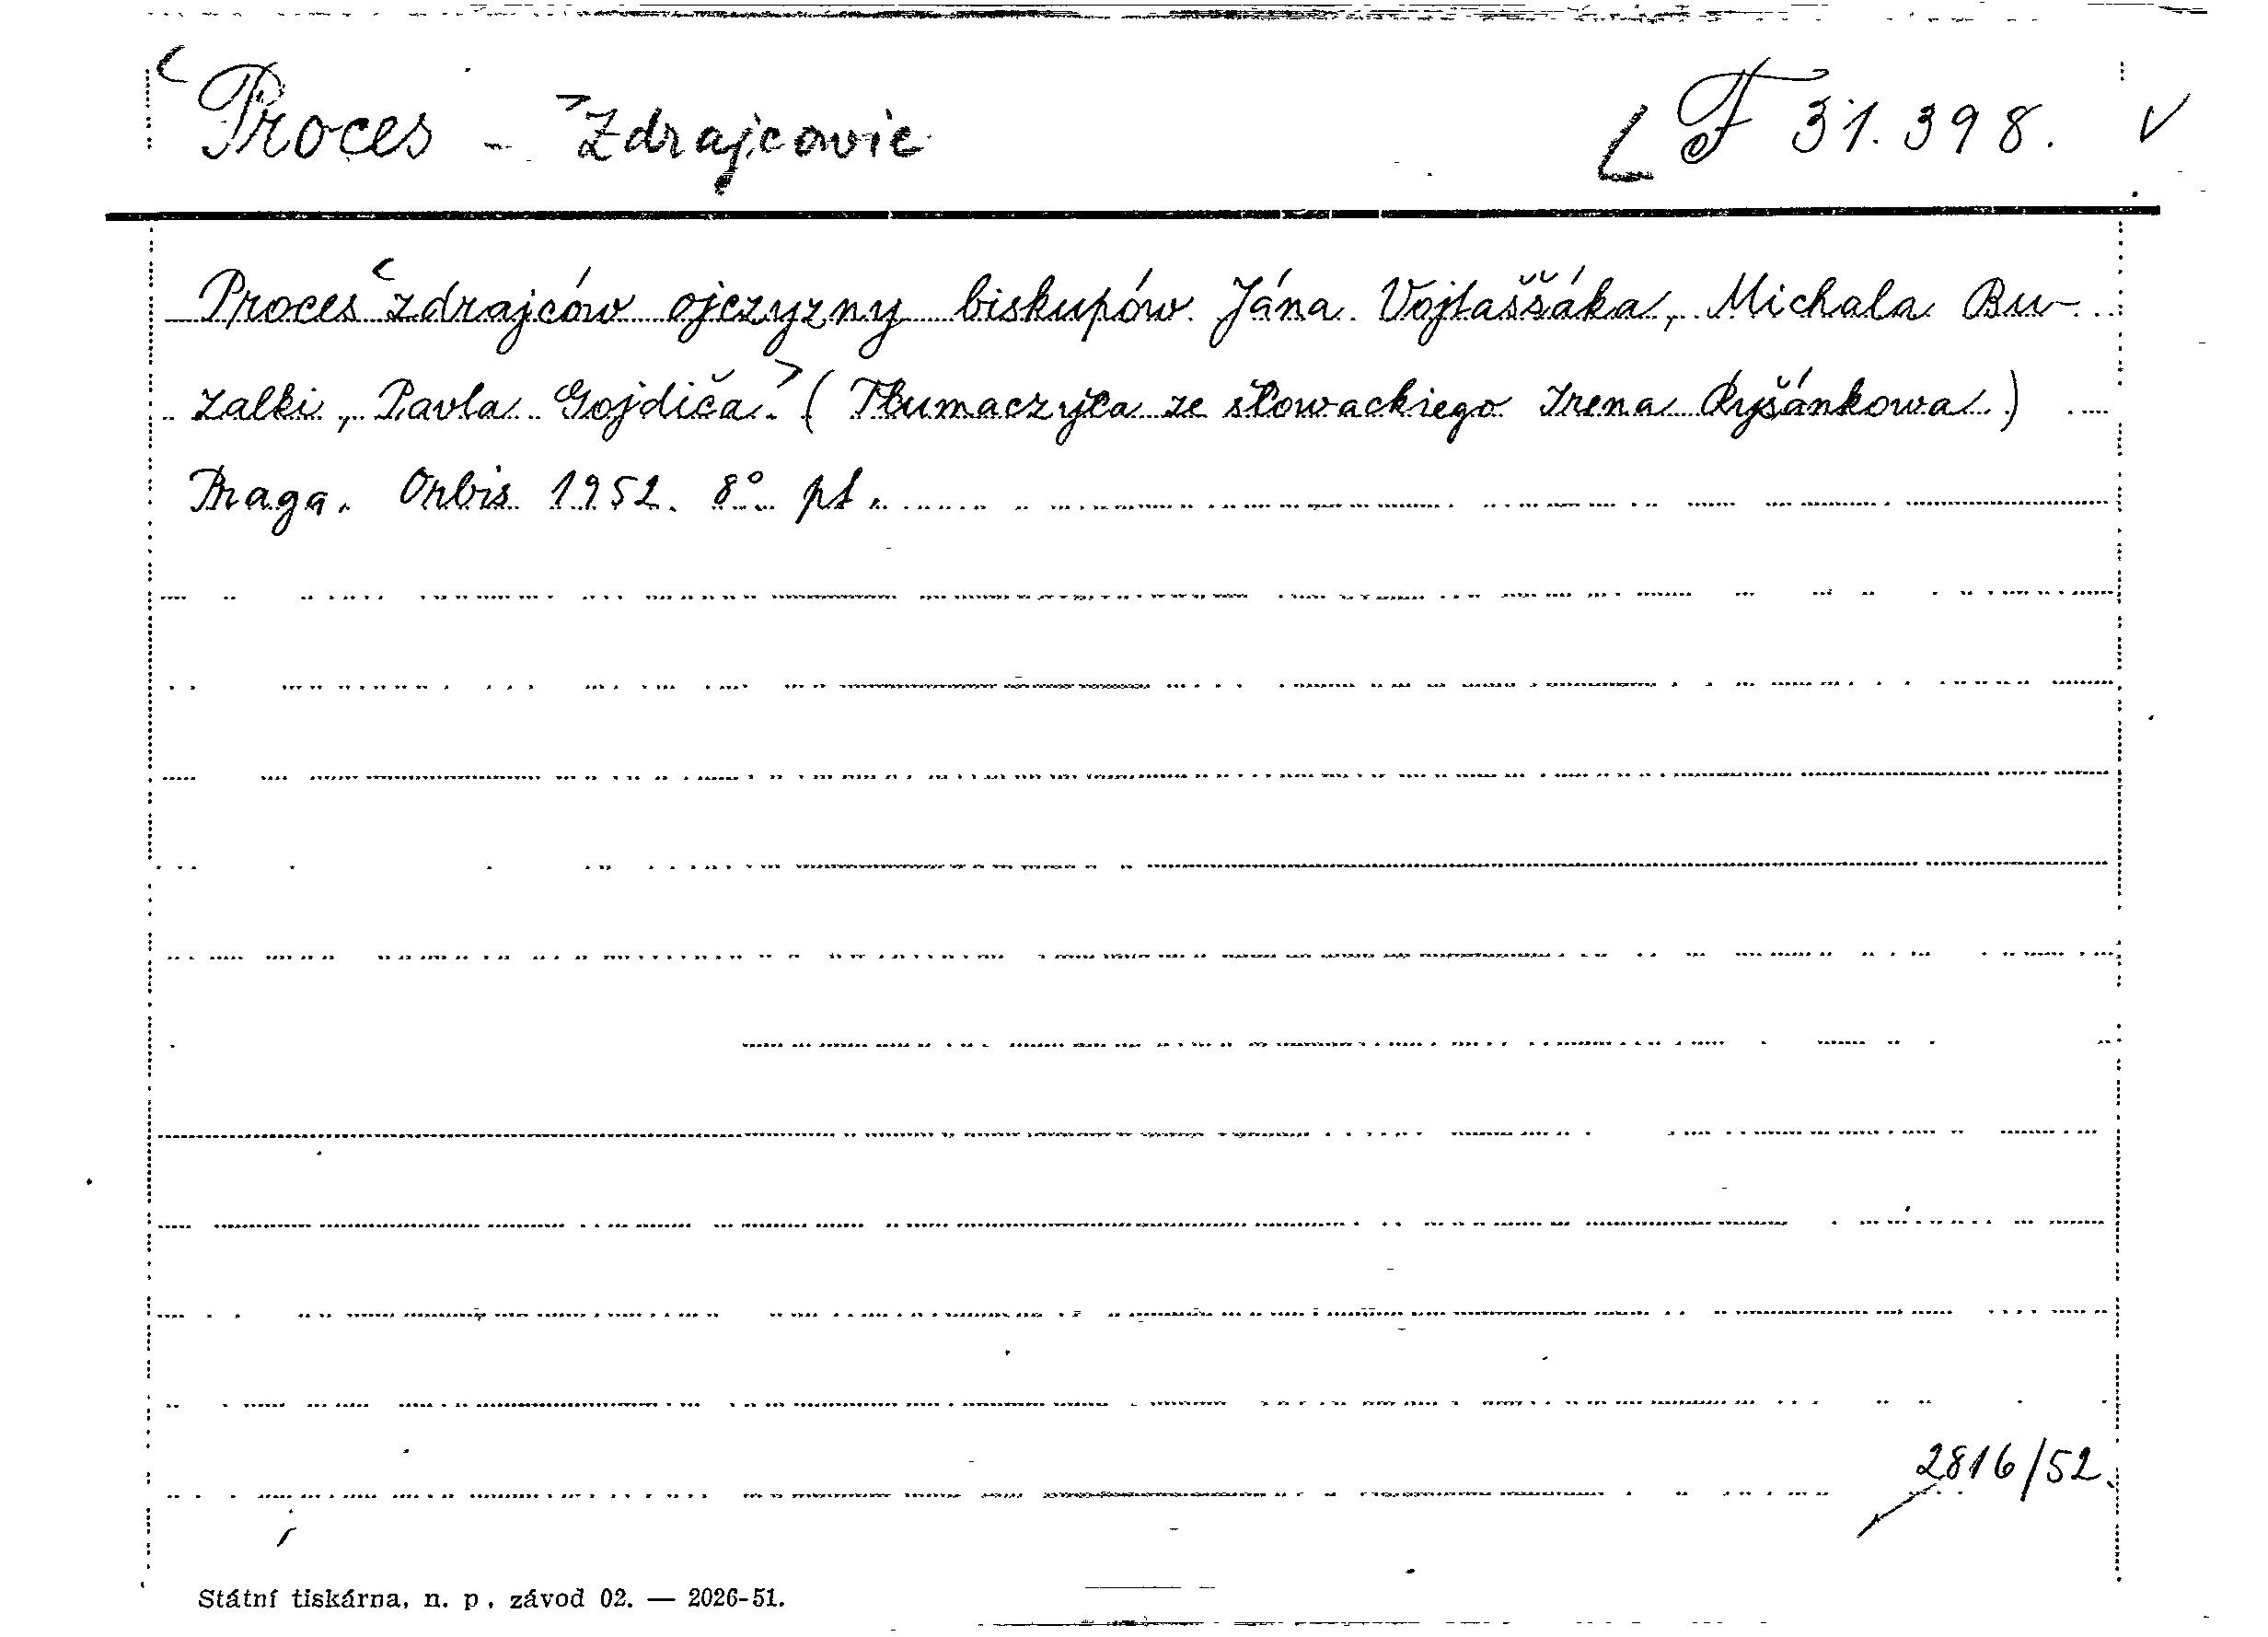 Proces - Zdrajcowie F 31.398.
Proces zdrajców ojczyzny biskupów Jána Vojtaššáka, Michala Bu-
zalki, Pavla Gojdiča. (Tłumaczyła ze słowackiego Irena Ryšánkowa)
Praga. Orbis 1952. 8° pł.
2816/52.
Státní tiskárna, n. p., závod 02. — 2026-51.